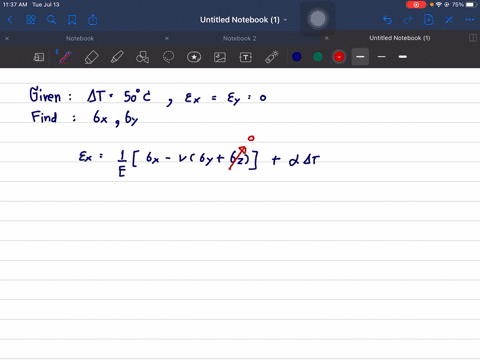 11:37 AM Tue Jul 13
75%
Untitled Notebook (1)
Notebook
Notebook 2
Untitled Notebook (1)
Given : ΔT = 50°C , εx = εy = 0
Find : σx , σy
0
εx = 1/E [ σx - ν ( σy + σz ) ] + α ΔT